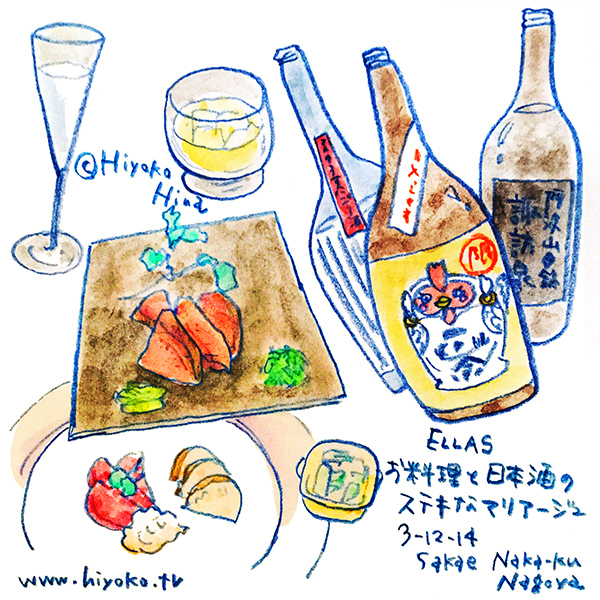 ©Hiyoko
Hina
諏訪泉
ELLAS
お料理と日本酒の
ステキなマリアージュ
3-12-14
Sakae Naka-ku
Nagoya
www.hiyoko.tv